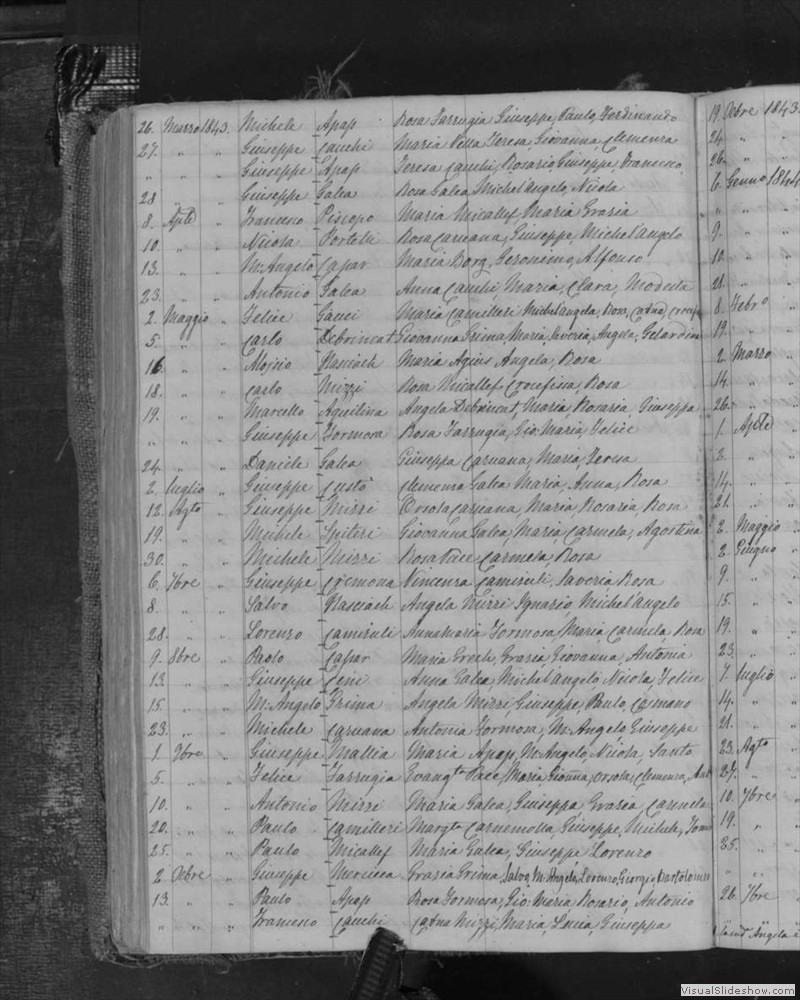 26. Marzo 1843. Michele Apap Rosa Farrugia Giuseppe, Paulo, Ferdinando
27. " " Giuseppe Cauchi Maria Vella Teresa, Giovanna, Clemenza
" " " Giuseppe Apap Teresa Cauchi, Rosario, Giuseppe, Francesco
28 " " Giuseppe Galea Rosa Galea Michel'Angelo, Nicola
8. Aple " Francesco Piscopo Maria Micallef, Maria Grazia
10. " " Nicola Portelli Rosa Caruana, Giuseppe, Michel'angelo
13. " " M: Angelo Capar Maria Borg, Geronimo, Alfonso
23. " " Antonio Galea Anna Cauchi, Maria, Clara, Modesta
2. Maggio " Felice Gauci Maria Camilleri Michel'angela, Rosa, Catna,
5. " " Carlo Debrincat Giovanna Grima, Maria, Saveria, Angela, Gelardina
16. " " Aloisio Hasciach Maria Agius Angela, Rosa
18. " " Carlo Mizzi Rosa Micallef Crocifissa, Rosa
19. " " Marcello Aquilina Angela Debrincat, Maria, Rosaria, Giuseppa
" " " Giuseppe Formosa Rosa Farrugia, Gio: Maria, Felice
24. " " Daniele Galea Giuseppa Caruana, Maria, Teresa
2. Luglio " Giuseppe Custò Clemenza Galea Maria, Anna, Rosa
12. Agto " Giuseppe Mizzi Orsola Caruana, Maria, Rosaria, Rosa
19. " " Michele Spiteri Giovanna Galea, Maria Carmela, Agostina
30. " " Michele Mizzi Rosa Pace Carmela, Rosa
6. 7bre " Giuseppe Cremona Vincenza Camizuli, Saveria Rosa
8. " " Salvo Hasciach Angela Mizzi Ignazio, Michel'angelo
28. " " Lorenzo Camizuli Annamaria Formosa, Maria Carmela, Rosa
9. 8bre " Paolo Capar Maria Grech, Grazia, Giovanna, Antonia
13. " " Giuseppe Cini Anna Galea Michel'angelo Nicola, Felice
15. " " M: Angelo Grima Angela Mizzi, Giuseppe, Paulo, Cosmano
23. " " Michele Caruana Antonia Formosa, M: Angelo Giuseppe
1. 9bre " Giuseppe Mallia Maria Apap, M: Angelo, Nicola, Santo
5. " " Felice Farrugia Evangta Pace, Maria, Gionna, Orsola, Clemenza, Ant
10. " " Antonio Mizzi Maria Galea, Giuseppa Grazia, Carmela
20. " " Paulo Camilleri Margta Carnemolla, Giuseppe, Michele,
25. " " Paulo Micallef Maria Galea, Giuseppe Lorenzo
2 Xbre " Giuseppe Mercieca Grazia Grima Salvo, M: Angelo, Lorenzo, Giorgio Bartolomeo
13. " " Paulo Apap Rosa Formosa, Gio: Maria Rosario, Antonio
" " " Francesco Cauchi Catna Mizzi, Maria, Lucia, Giuseppa
19 Xbre 1843.
24 " "
26. " "
6. Genno 1844
" "
9. "
10. "
21. "
8. Febro
19. "
2. Marzo
14. "
26. "
1. Aple
2. "
14. "
21. "
2. Maggio
2. Giugno
9. "
15. "
19. "
23. "
7. Luglio
14. "
21. "
23. Agto
27. "
10. 7bre
19. "
25. "
" "
26. 7bre
Angela
VisualSlideshow.com